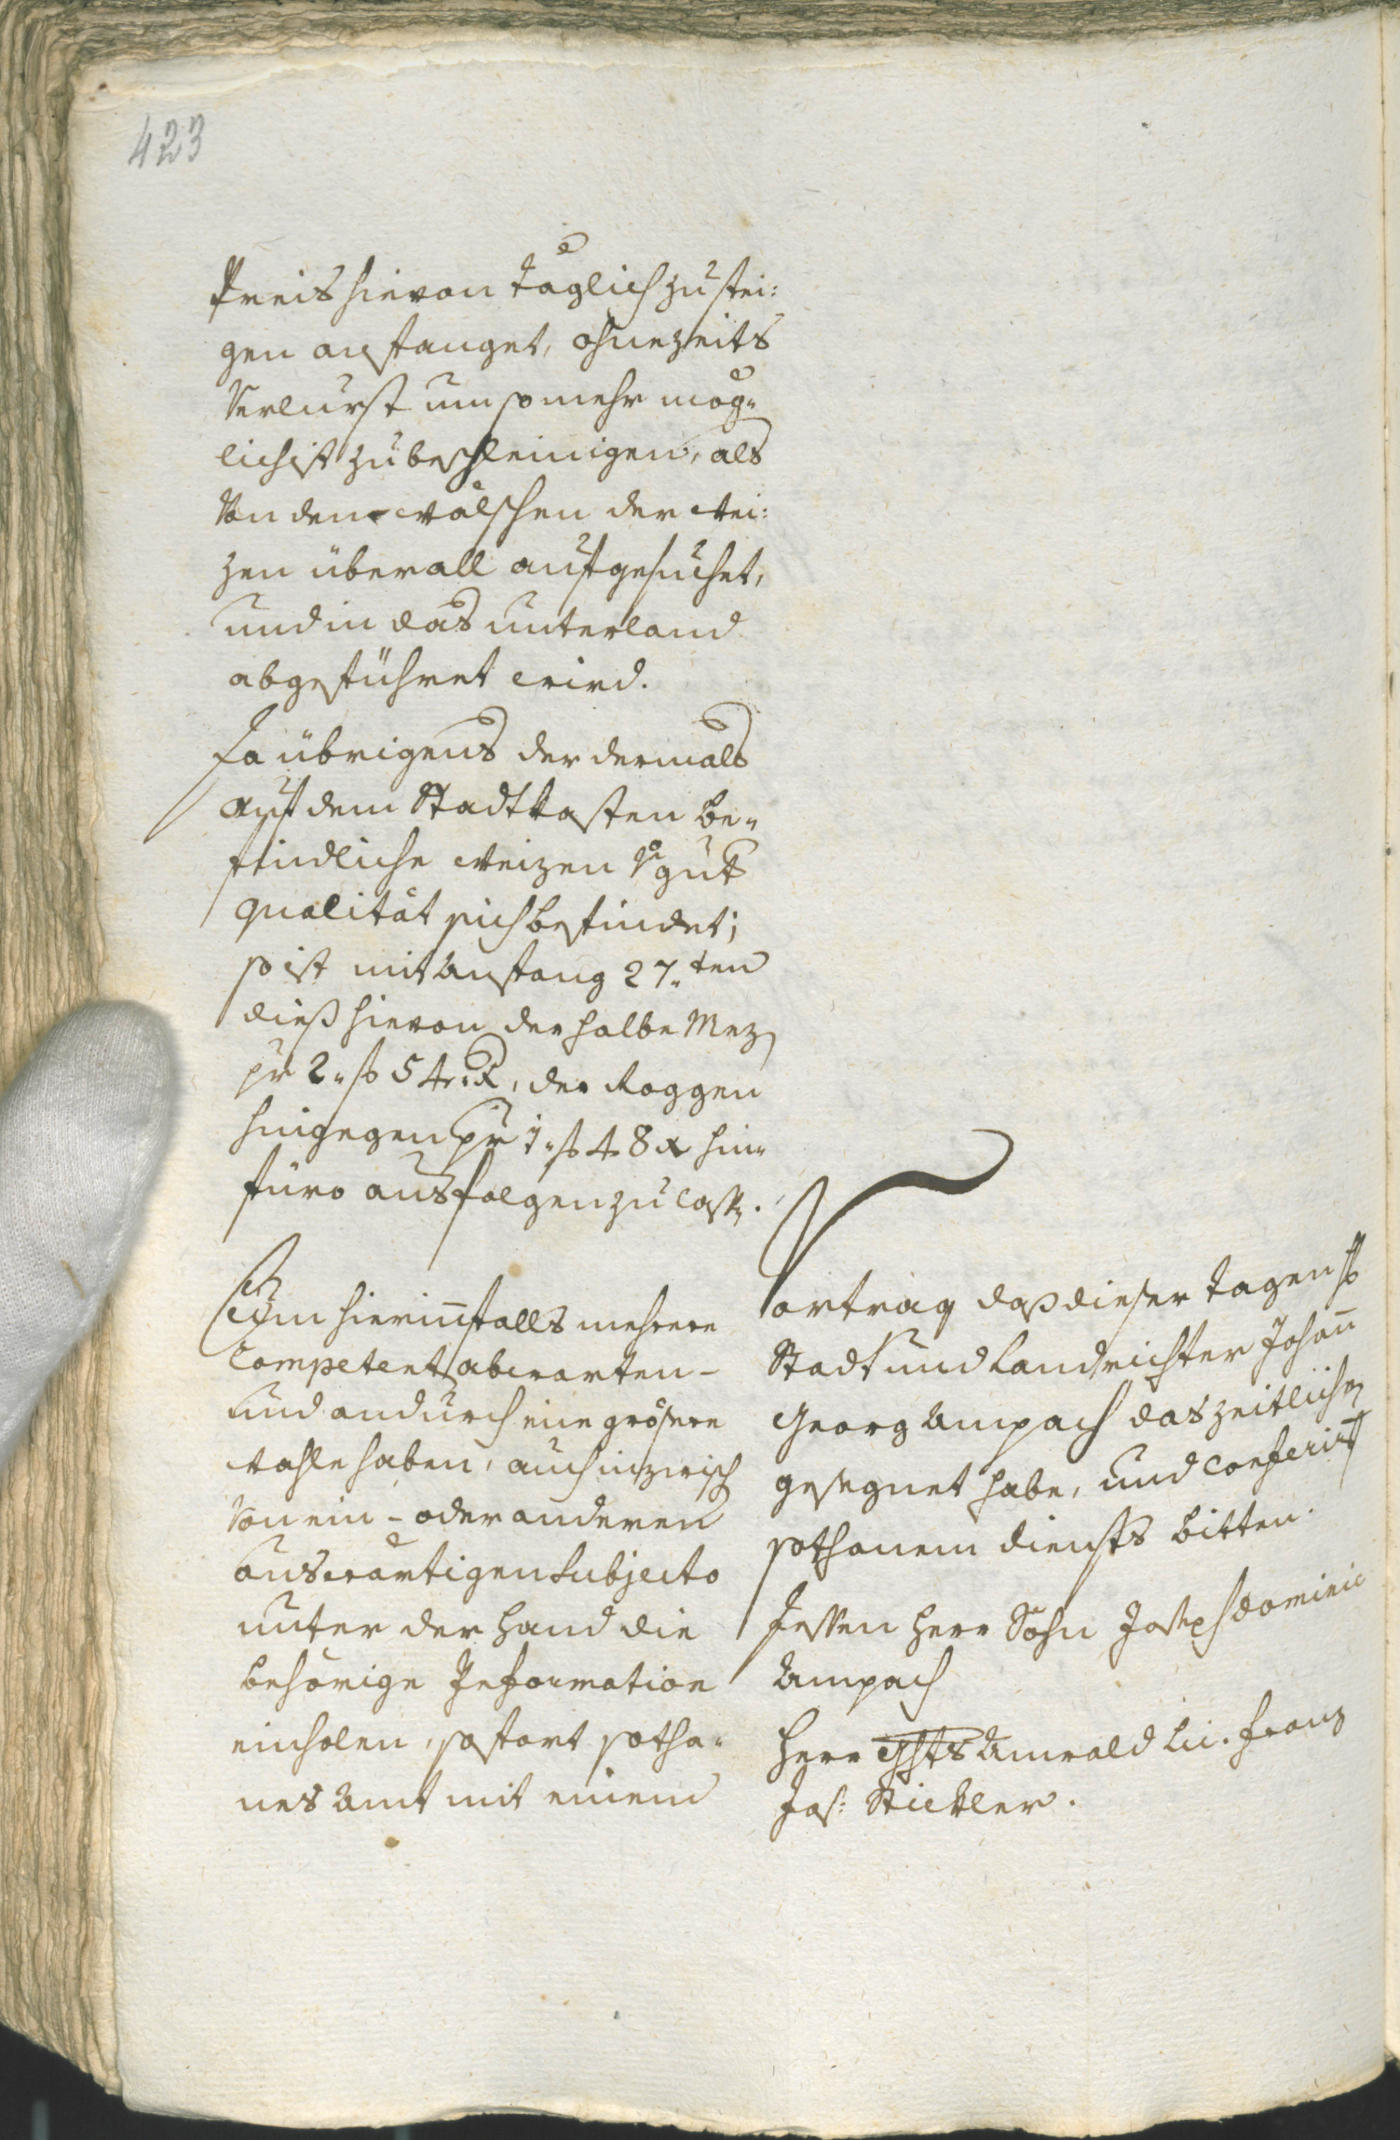 423
Preis hievon täglich zu stei:
gen anfanget, ohne zeits
Verlurst um so mehr mög„
lichist zu beschleinigen, als
Von den wälschen der Wei:
zen überall aufgesuchet,
und in das unterland
abgeführet wird.
Da übrigens der dermals
auf dem Stadtkasten be„
findliche Weizen Von gut
qualität sich befindet;
so ist mit Anfang 27.ten
dieß hievon der halbe Mez
pr 2„ f 54 x, der Roggen
hingegen pr 1„ f 48 x hin„
füro ausfolgen zu lass.
Man hierinfalls mehrere
Competenten abwarten -
und andurch eine grössere
Wahle haben, auch inzwisch
Von ein - oder anderen
auswärtigen Subjecto
unter der Hand die
behörige Information
einholen, sofort sotha„
nes Amt mit einem
Vortrag daß dieser Tagen H
Stadt und Landrichter Johan
Georg Ampach das zeitliche
gesegnet habe, und
sothanem diensts bitten.
Dessen Herr Sohn Joseph Dominic
Ampach
Herr Ghts Anwald Lic. Franz
Jos: Stickler.